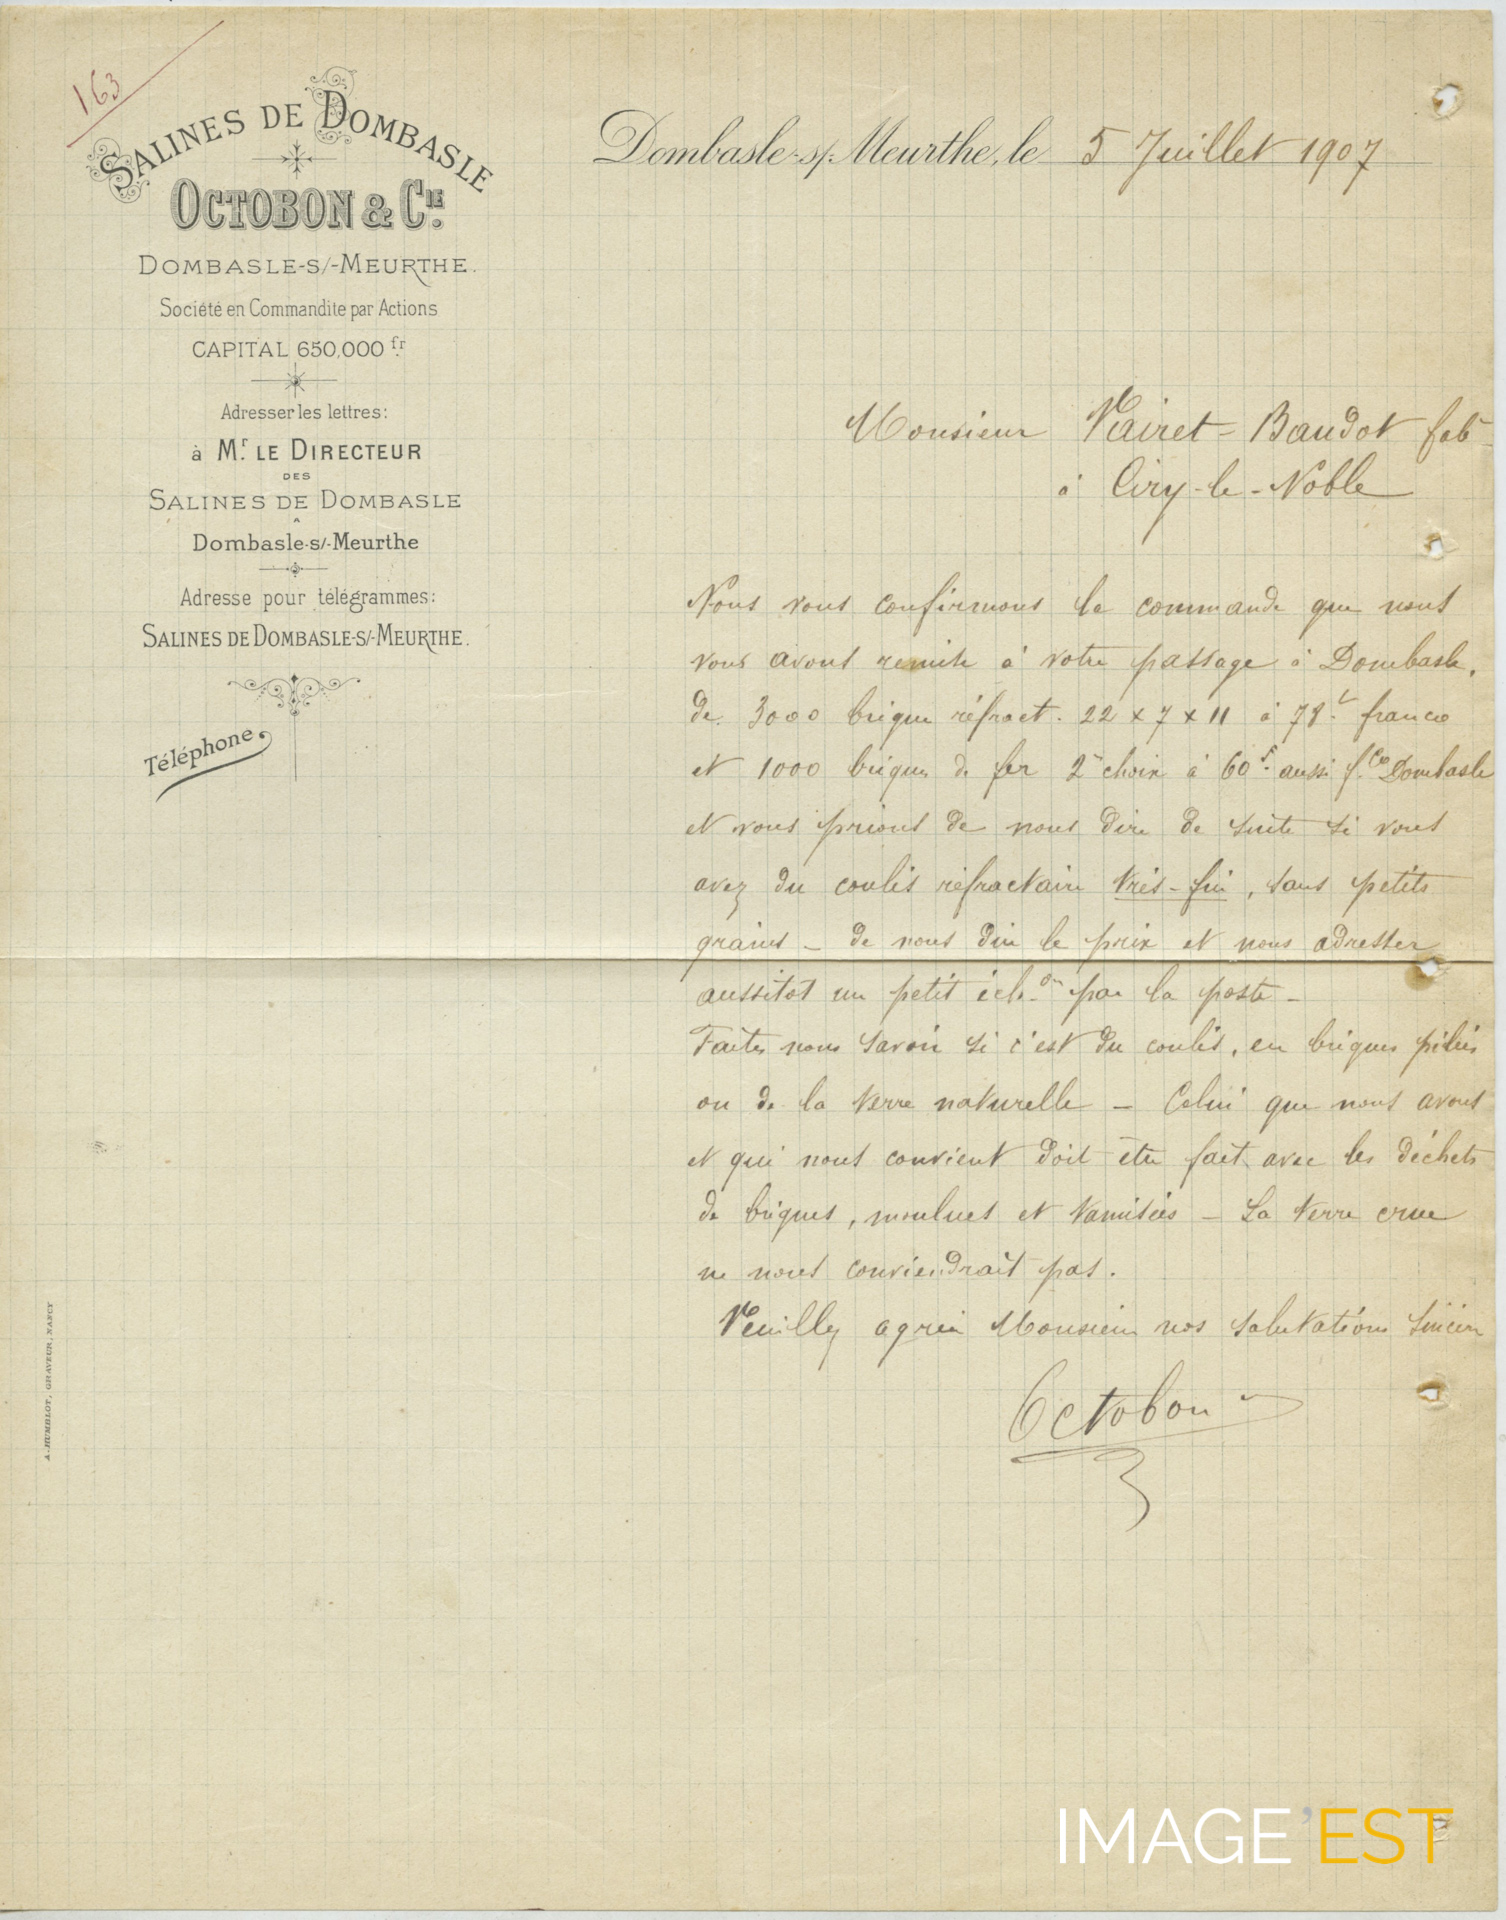 163
SALINES DE DOMBASLE
OCTOBON & CIE.
DOMBASLE-S/-MEURTHE.
Société en Commandite par Actions
CAPITAL 650,000 fr.
Adresser les lettres:
à Mr. LE DIRECTEUR
DES
SALINES DE DOMBASLE
A
Dombasle-s/-Meurthe
Adresse pour télégrammes:
SALINES DE DOMBASLE-S/-MEURTHE.
Téléphone
A. HUMBLOT, GRAVEUR, NANCY
Dombasle-s/-Meurthe, le 5 Juillet 1907
Monsieur Vairet-Baudot fab
à Ciry-le-Noble
Nous vous confirmons la commande que nous
vous avons remise à votre passage à Dombasle,
de 3000 briques réfract. 22 x 7 x 11 à 78 franco
et 1000 briques de fer 2e choix à 60f. aussi f.co Dombasle
et vous prions de nous dire de suite si vous
avez du coulis réfractaire très-fin, sans petits
grains - de nous dire le prix et nous adresser
aussitôt un petit éch.on par la poste -
Faites nous savoir si c'est du coulis, en briques pilées
ou de la terre naturelle - Celui que nous avons
et qui nous convient doit être fait avec les déchets
de briques, moulues et tamisées - La terre crue
ne nous conviendrait pas.
Veuillez agréer Monsieur nos salutations sincères
Octobon
IMAGE'EST